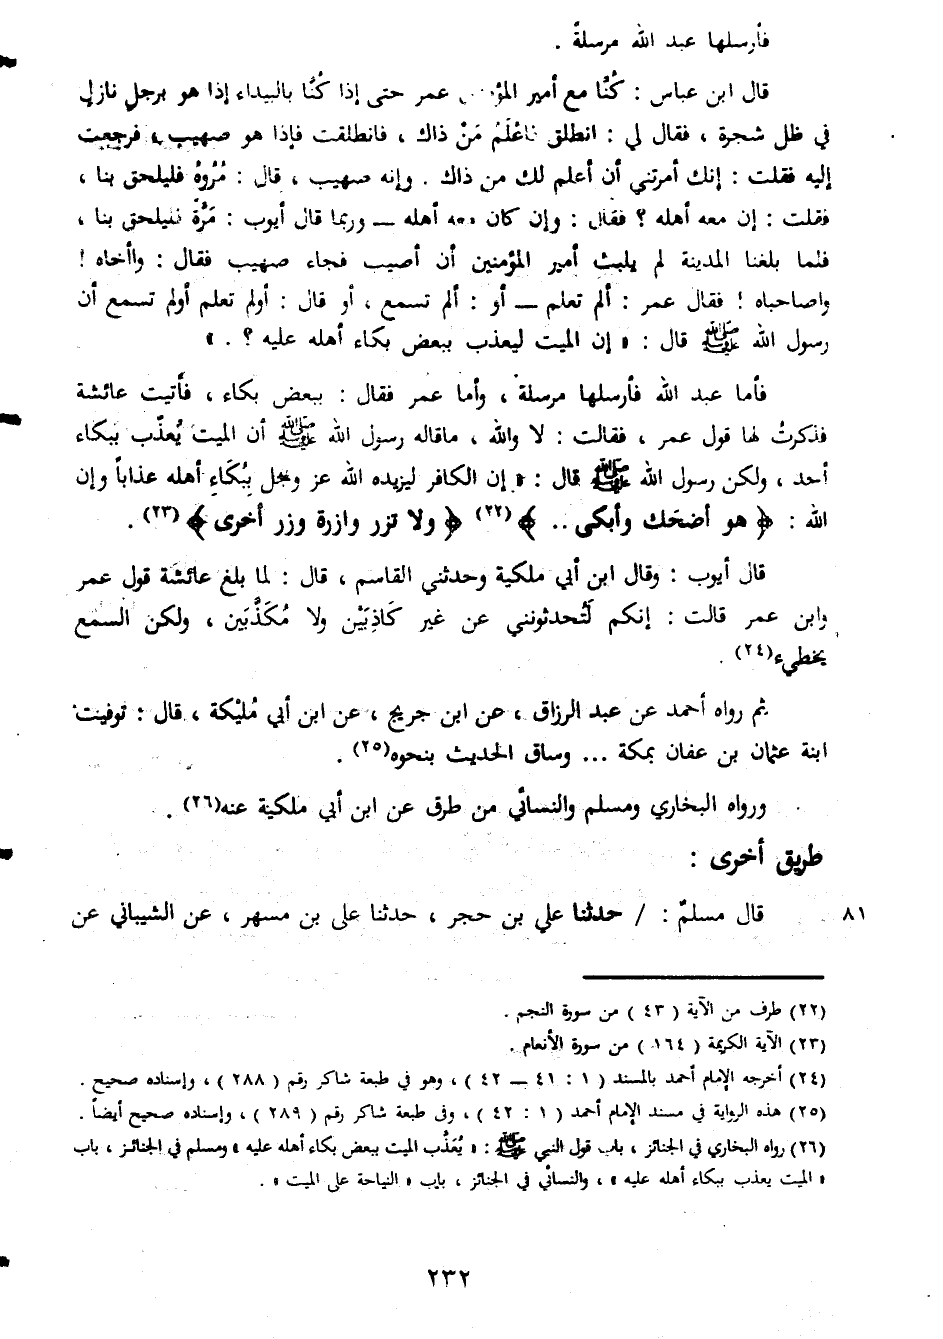 فأرسلها عبد الله مرسلةً .
قال ابن عباس : كُنَّا مع أمير عمر حتى إذا كُنَّا بالبيداء إذا هو برجل نازل
في ظل شجرة ، فقال لي : انطلق فاعْلَمْ مَنْ ذاك ، فانطلقت فإذا هو صهيب ، فرجعت
إليه فقلت : إنك أمرتني أن أعلم لك من ذاك . وإنه صهيب ، قال : مُرُوهُ فليلحق بنا ،
فقلت : إن معه أهله ؟ فقال : وإن كان معه أهله ــ وربما قال أيوب : مَرَّةً فليلحق بنا ،
فلما بلغنا المدينة لم يلبث أمير المؤمنين أن أصيب فجاء صهيب فقال : واأخاه !
واصاحباه ! فقال عمر : ألم تعلم ــ أو : ألم تسمع ، أو قال : أولم تعلم أولم تسمع أن
رسول الله ﷺ قال : « إن الميت ليعذب ببعض بكاء أهله عليه ؟ . »
فأما عبد الله فأرسلها مرسلة ، وأما عمر فقال : ببعض بكاء ، فأتيت عائشة
فذكرتُ لها قول عمر ، فقالت : لا والله ، ماقاله رسول الله ﷺ أن الميت يُعذّب ببكاء
أحد ، ولكن رسول الله ﷺ قال : « إن الكافر ليزيده الله عز وجل بِبُكَاءِ أهله عذاباً وإن
الله : ﴿ هو أضحك وأبكى .. ﴾ (٢٢) ﴿ ولا تزر وازرة وزر أخرى ﴾ (٢٣) .
قال أيوب : وقال ابن أبي ملكية وحدثني القاسم ، قال : لما بلغ عائشة قول عمر
وابن عمر قالت : إنكم لَتُحدثونني عن غير كَاذِبَيْن ولا مُكَذَّبَين ، ولكن السمع
يخطيء (٢٤) .
ثم رواه أحمد عن عبد الرزاق ، عن ابن جريج ، عن ابن أبي مُليْكة ، قال : توفيت
ابنة عثمان بن عفان بمكة ... وساق الحديث بنحوه (٢٥) .
ورواه البخاري ومسلم والنسائي من طرق عن ابن أبي ملكية عنه (٢٦) .
طريق أخرى :
٨١ قال مسلمٌ : / حدثنا علي بن حجر ، حدثنا على بن مسهر ، عن الشيباني عن
(٢٢) طرف من الآية ( ٤٣ ) من سورة النجم .
(٢٣) الآية الكريمة ( ١٦٤ ) من سورة الأنعام .
(٢٤) أخرجه الإمام أحمد بالمسند ( ١ : ٤١ ــ ٤٢ ) ، وهو في طبعة شاكر رقم ( ٢٨٨ ) ، وإسناده صحيح .
(٢٥) هذه الرواية في مسند الإمام أحمد ( ١ : ٤٢ ) ، وفى طبعة شاكر رقم ( ٢٨٩ ) ، وإسناده صحيح أيضاً .
(٢٦) رواه البخاري في الجنائز ، باب قول النبي ﷺ : « يُعَذَّب الميت ببعض بكاء أهله عليه » ومسلم في الجنائز ، باب
« الميت يعذب ببكاء أهله عليه » ، والنسائي في الجنائز ، باب « النياحة على الميت » .
٢٣٢